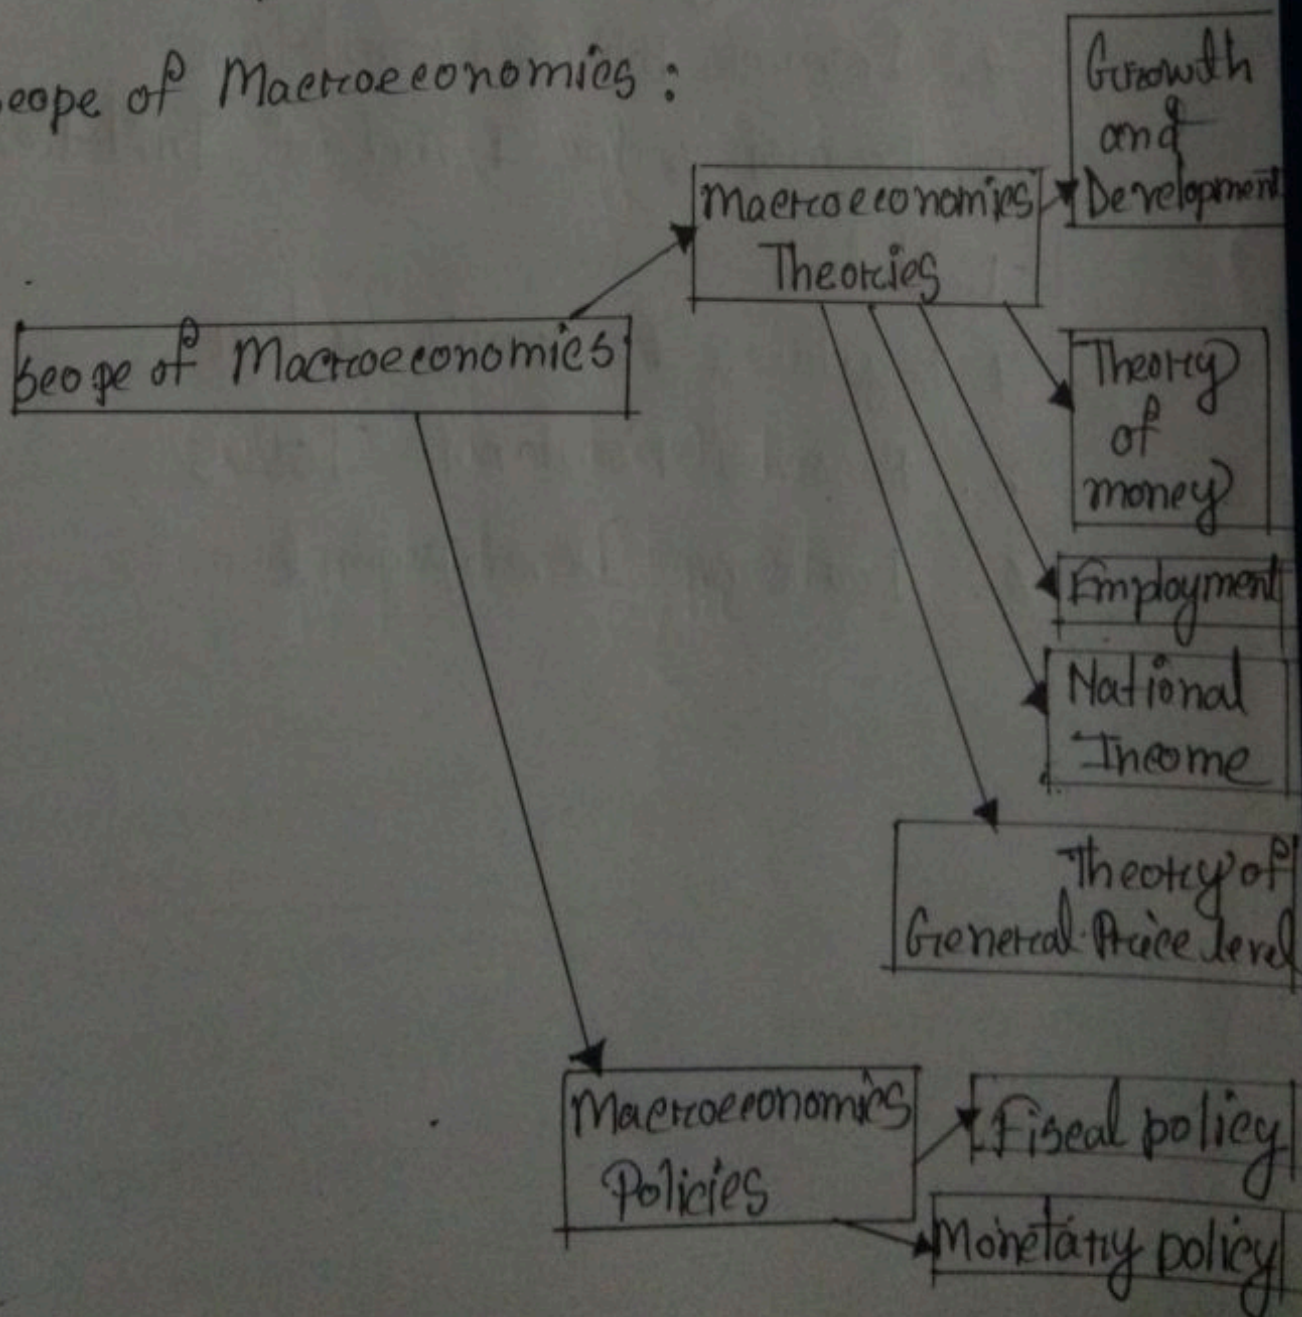 Scope of Macroeconomics :
Growth
and
Development
Macroeconomics
Theories
Scope of Macroeconomics
Theory
of
money
Employment
National
Income
Theory of
General Price level
Macroeconomics
Policies
Fiscal policy
Monetary policy